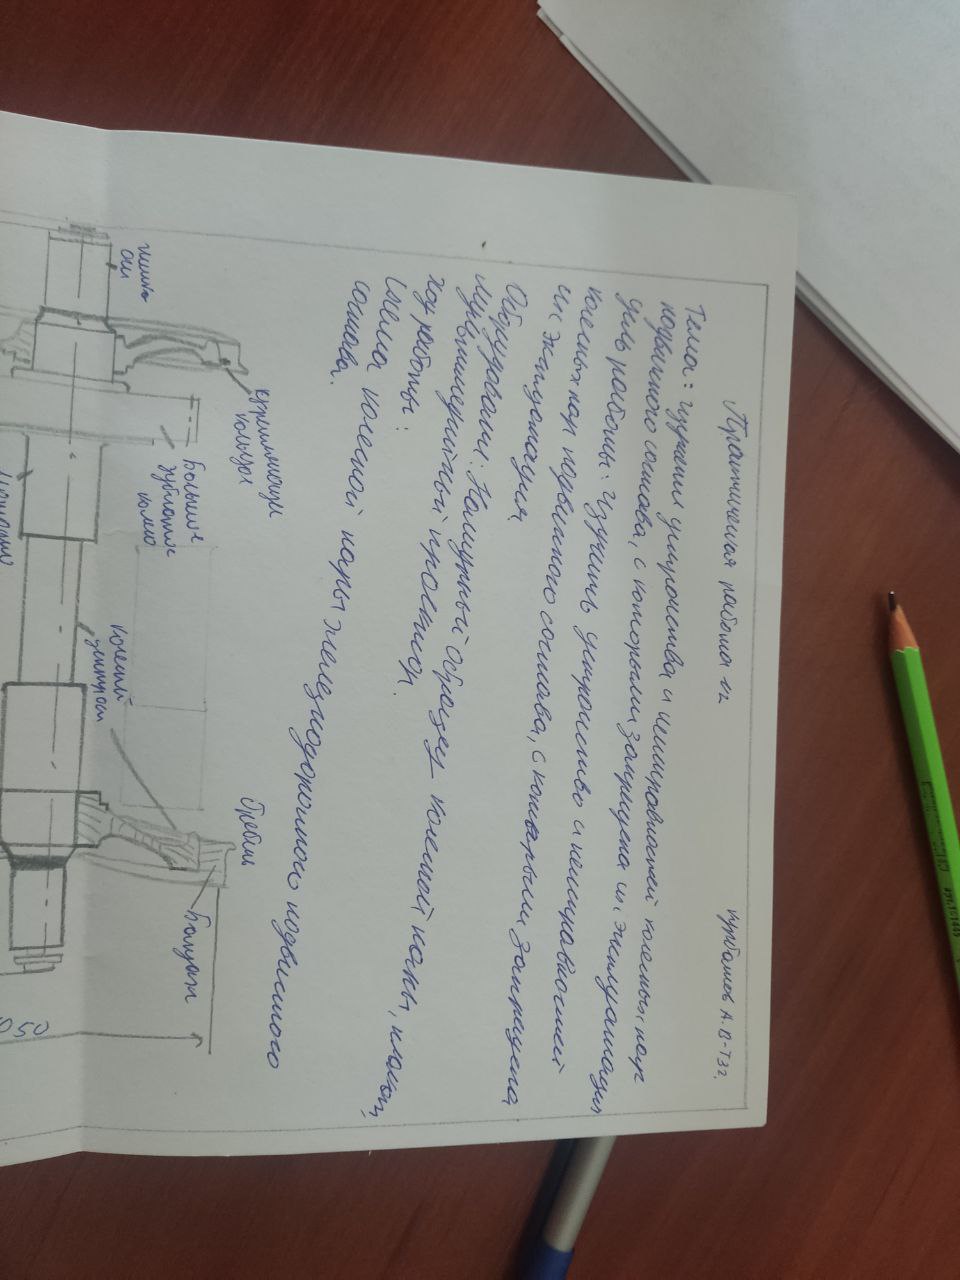 Практическая работа №2
Курбанов А. В-Т32.
Тема: изучения устройства и неисправностей колесных пар
подвижного состава, с которыми запрещена их эксплуатация
Цель работы: Изучить устройство и неисправностей
колесных пар подвижного состава, с которыми запрещена
их эксплуатация
Оборудования: Натурный образец колесной пары, плакат,
мультимедийный проектор.
Ход работы:
Схема колесной пары железнодорожного подвижного
состава.
шейка
оси
кольцо
Большое
зубчатое
колесо
Колесный
центр
Гребень
Бандаж
1050